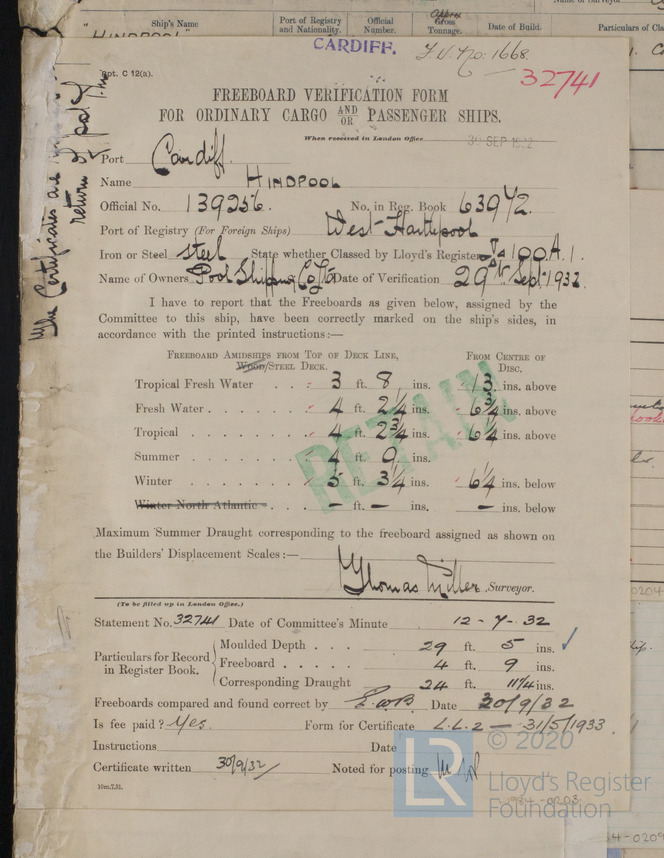 Name of Surveyor
Ship's Name
Port of Registry and Nationality.
Official Number.
Gross Tonnage.
Date of Build.
Particulars of Cla
"HINDPOOL"
CARDIFF.
F.V. No: 1668.
32741
Rpt. C 12(a).
FREEBOARD VERIFICATION FORM
FOR ORDINARY CARGO AND/OR PASSENGER SHIPS.
When received in London Office 30 SEP 1932
Port Cardiff.
Name HINDPOOL
Official No. 139256. No. in Reg. Book 63942.
Port of Registry (For Foreign Ships) West Hartlepool
Iron or Steel steel State whether Classed by Lloyd's Register 100A.1.
Name of Owners Pool Shipping Co Ltd Date of Verification 29th Sept. 1932.
I have to report that the Freeboards as given below, assigned by the
Committee to this ship, have been correctly marked on the ship's sides, in
accordance with the printed instructions:—
FREEBOARD AMIDSHIPS FROM TOP OF DECK LINE, WOOD/STEEL DECK.
FROM CENTRE OF DISC.
Tropical Fresh Water 3 ft. 8 ins. 13 ins. above
Fresh Water 4 ft. 2 1/4 ins. 6 3/4 ins. above
Tropical 4 ft. 2 3/4 ins. 6 1/4 ins. above
Summer 4 ft. 9 ins.
Winter 5 ft. 3 1/4 ins. 6 1/4 ins. below
Winter North Atlantic — ft. — ins. — ins. below
RETAIN
Maximum Summer Draught corresponding to the freeboard assigned as shown on
the Builders' Displacement Scales:—
Thomas Miller Surveyor.
(To be filled up in London Office.)
Statement No. 32741 Date of Committee's Minute 12-7-32
Particulars for Record in Register Book.
Moulded Depth 29 ft. 5 ins.
Freeboard 4 ft. 9 ins.
Corresponding Draught 24 ft. 11 1/4 ins.
Freeboards compared and found correct by Date 30/9/32
Is fee paid? Yes. Form for Certificate L.L.2 — 31/5/1933
Instructions Date
Certificate written 30/9/32 Noted for posting
10m.7.31.
The Certificates are
return of
LR
© 2020
Lloyd's Register
Foundation